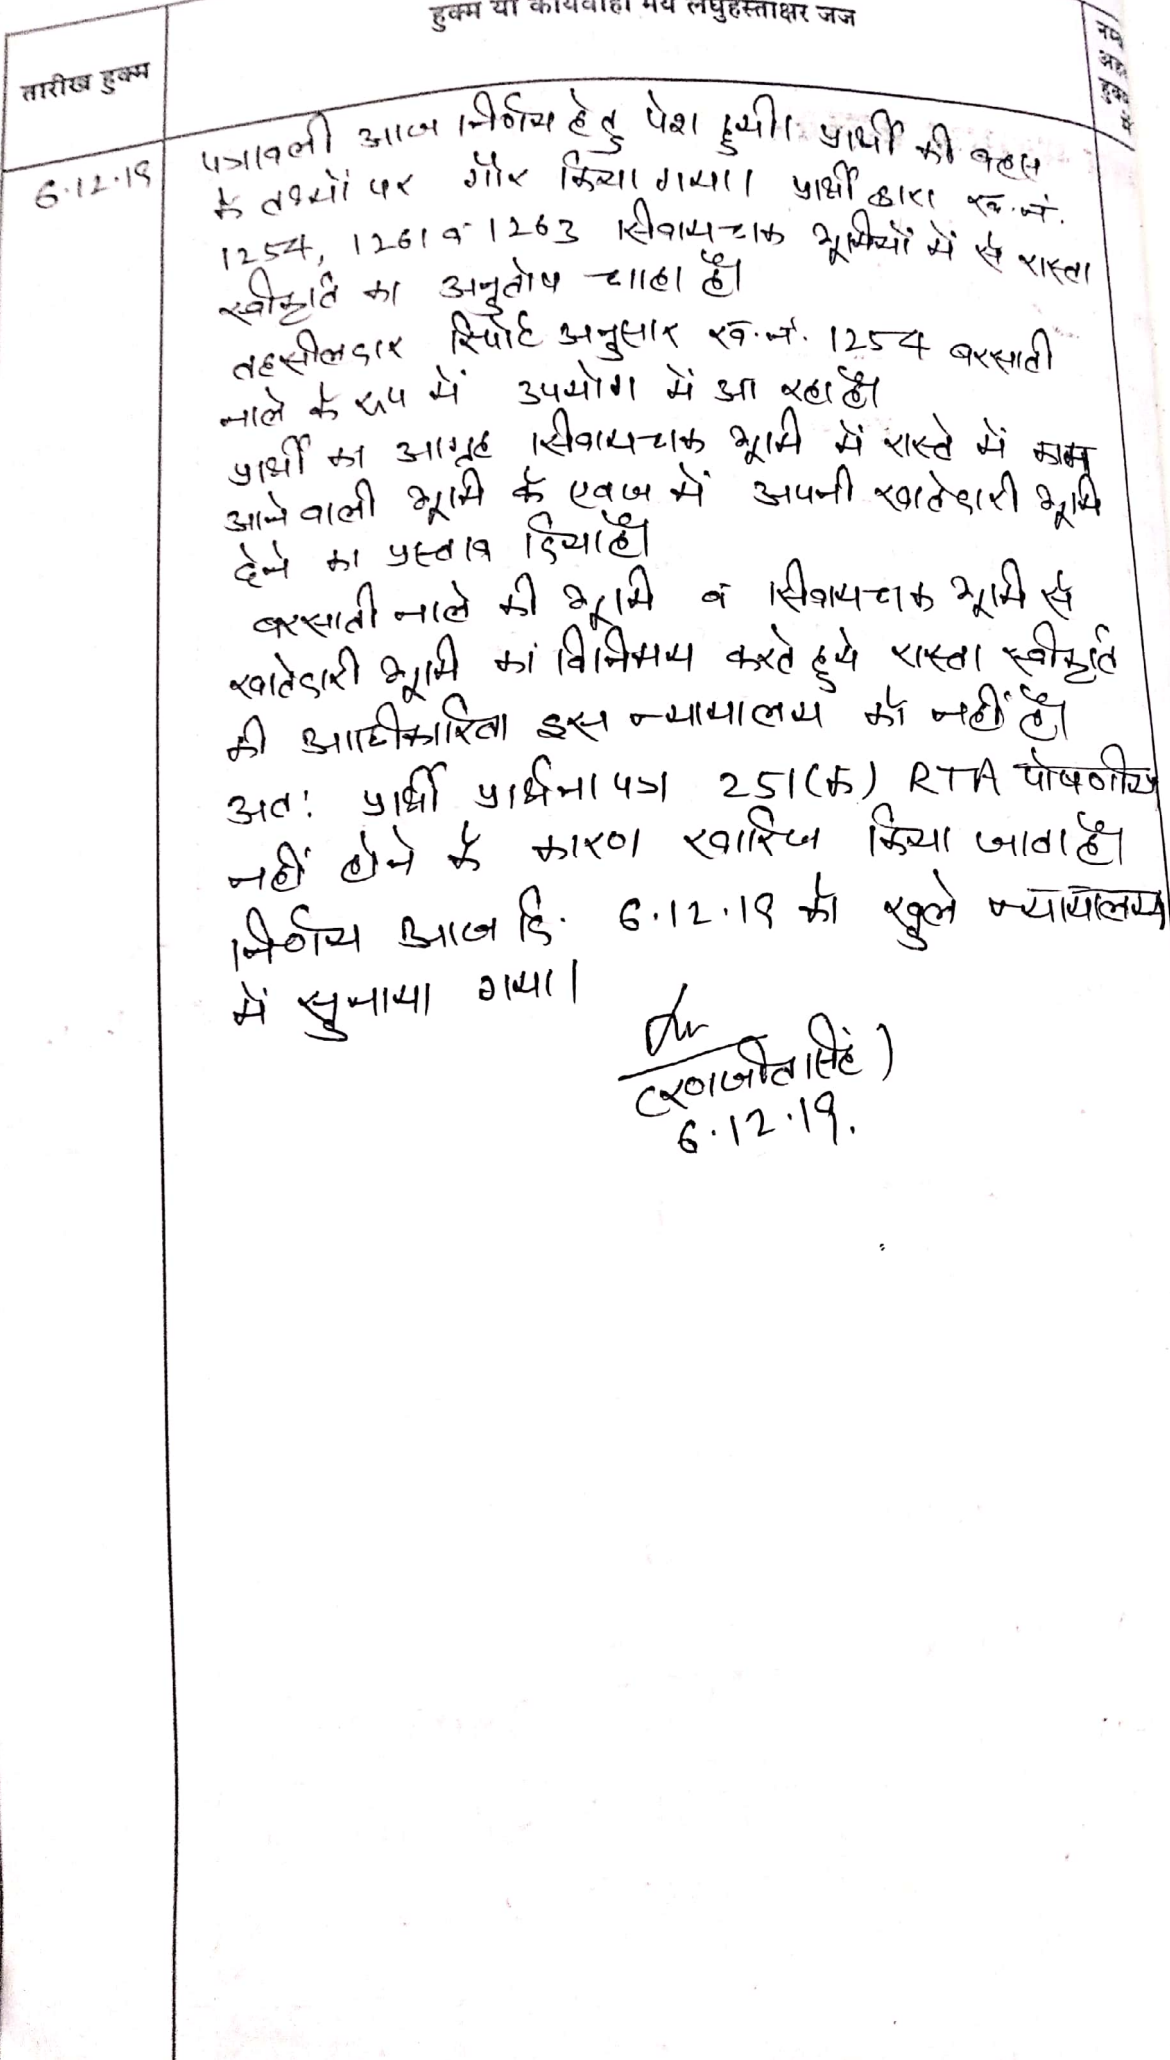 हुक्म या कार्यवाही मय लघुहस्ताक्षर जज
तारीख हुक्म
6.12.19
पत्रावली आज निर्णय हेतु पेश हुयी। प्रार्थी की बहस
के तथ्यों पर गौर किया गया। प्रार्थी द्वारा ख.नं.
1254, 1261 व 1263 सिवायचक भूमियों में से रास्ता
स्वीकृति का अनुतोष चाहा है।
तहसीलदार रिपोर्ट अनुसार ख.नं. 1254 बरसाती
नाले के रूप में उपयोग में आ रहा है।
प्रार्थी का आग्रह सिवायचक भूमि में रास्ते में काम
आने वाली भूमि के एवज में अपनी खातेदारी भूमि
देने का प्रस्ताव दिया है।
बरसाती नाले की भूमि व सिवायचक भूमि से
खातेदारी भूमि का विनिमय करते हुये रास्ता स्वीकृति
की आधिकारिता इस न्यायालय को नहीं है।
अतः प्रार्थी प्रार्थना पत्र 251(क) RTA पोषणीय
नहीं होने के कारण खारिज किया जाता है।
निर्णय आज दि. 6.12.19 को खुले न्यायालय
में सुनाया गया।
(रणजीत सिंह)
6.12.19.